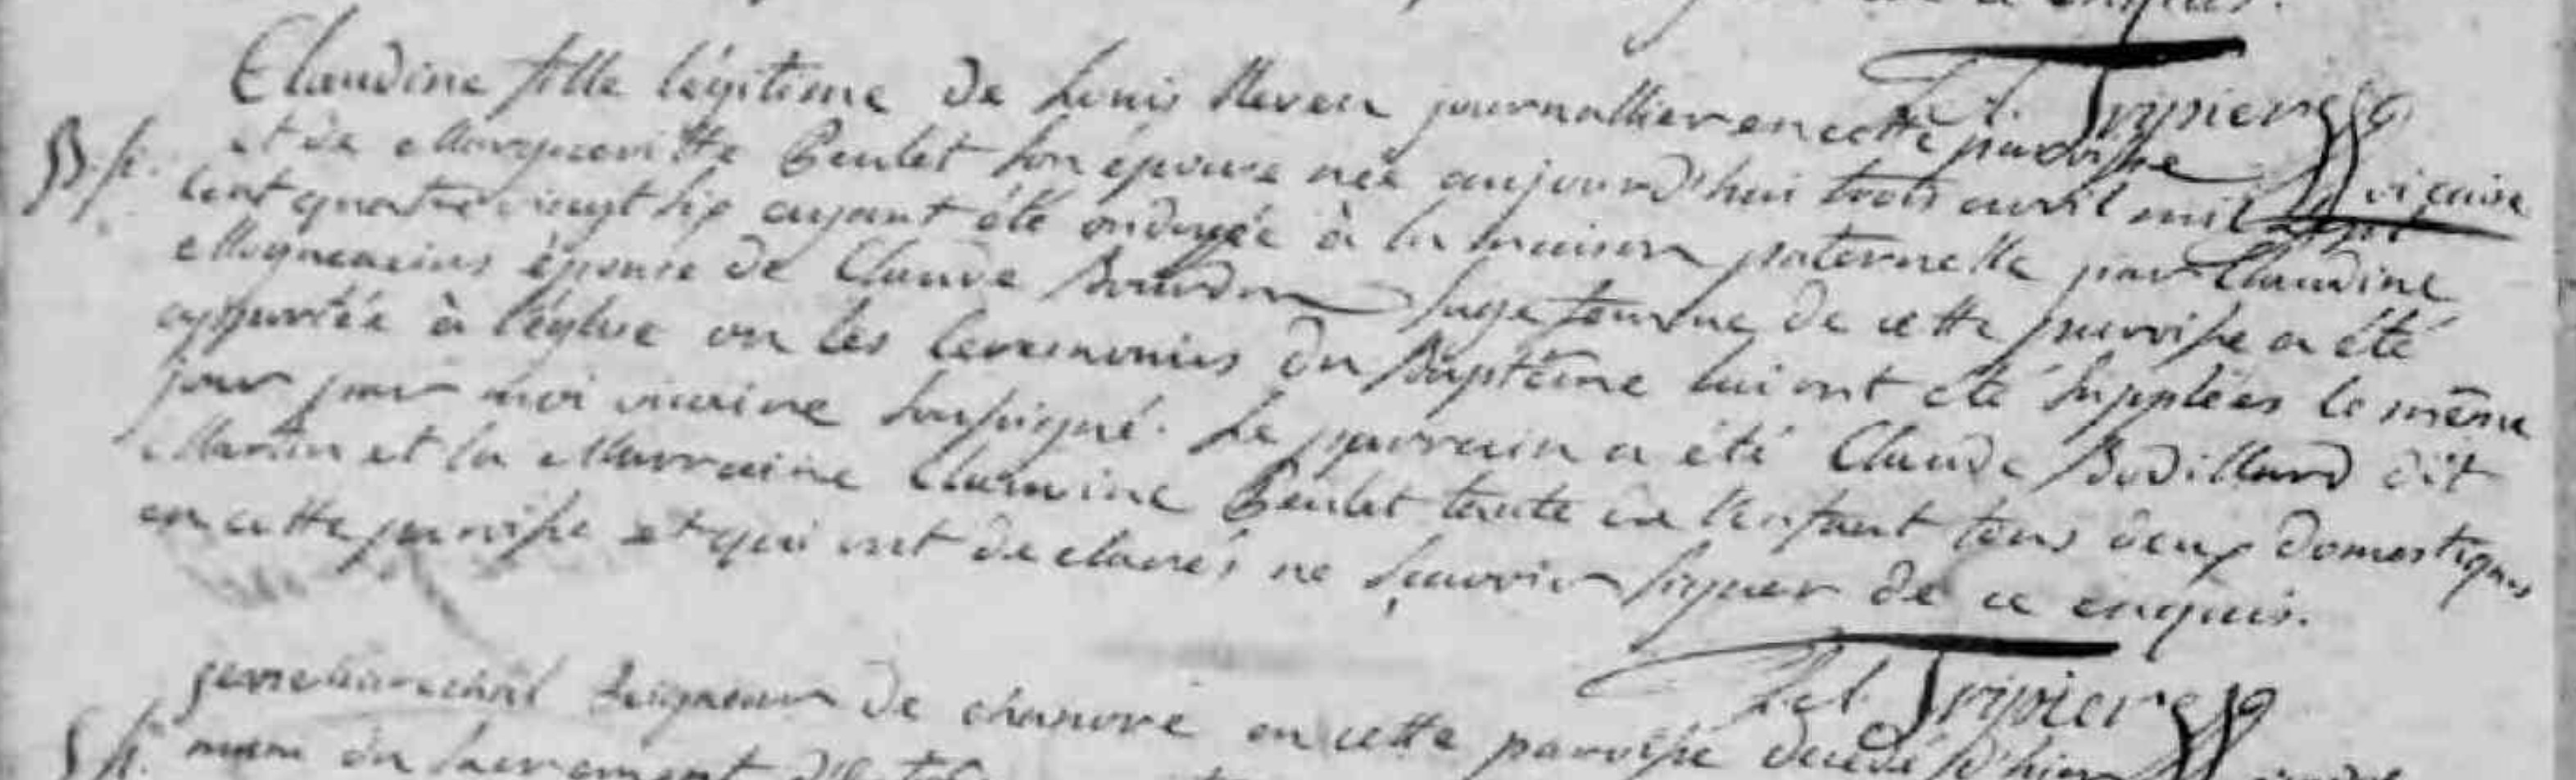 de ce enquis.
Claudine fille légitime de Louis Neveu journallier en cette paroisse
B. f. et de Margueritte Beulet son épouse née aujourd'hui trois avril mil sept
cent quatre vingt six ayant été ondoyée à la maison paternelle par Claudine
épouse de Claude Bourdon sage femme de cette paroisse a été
apportée à l'église ou les ceremonies du Baptême lui ont été supplées le même
jour par moi vicaire soussigné. Le parrain a été Claude Bodillard dit
Martin et la Marraine Claudine Beulet tante de l'enfant tous deux domestiques
en cette paroisse et qui ont declarés ne sçavoir signer de ce enquis.
Tripier
vicaire
Tripier
Seigneur de en cette paroisse decedé d'hier
muni du sacrement